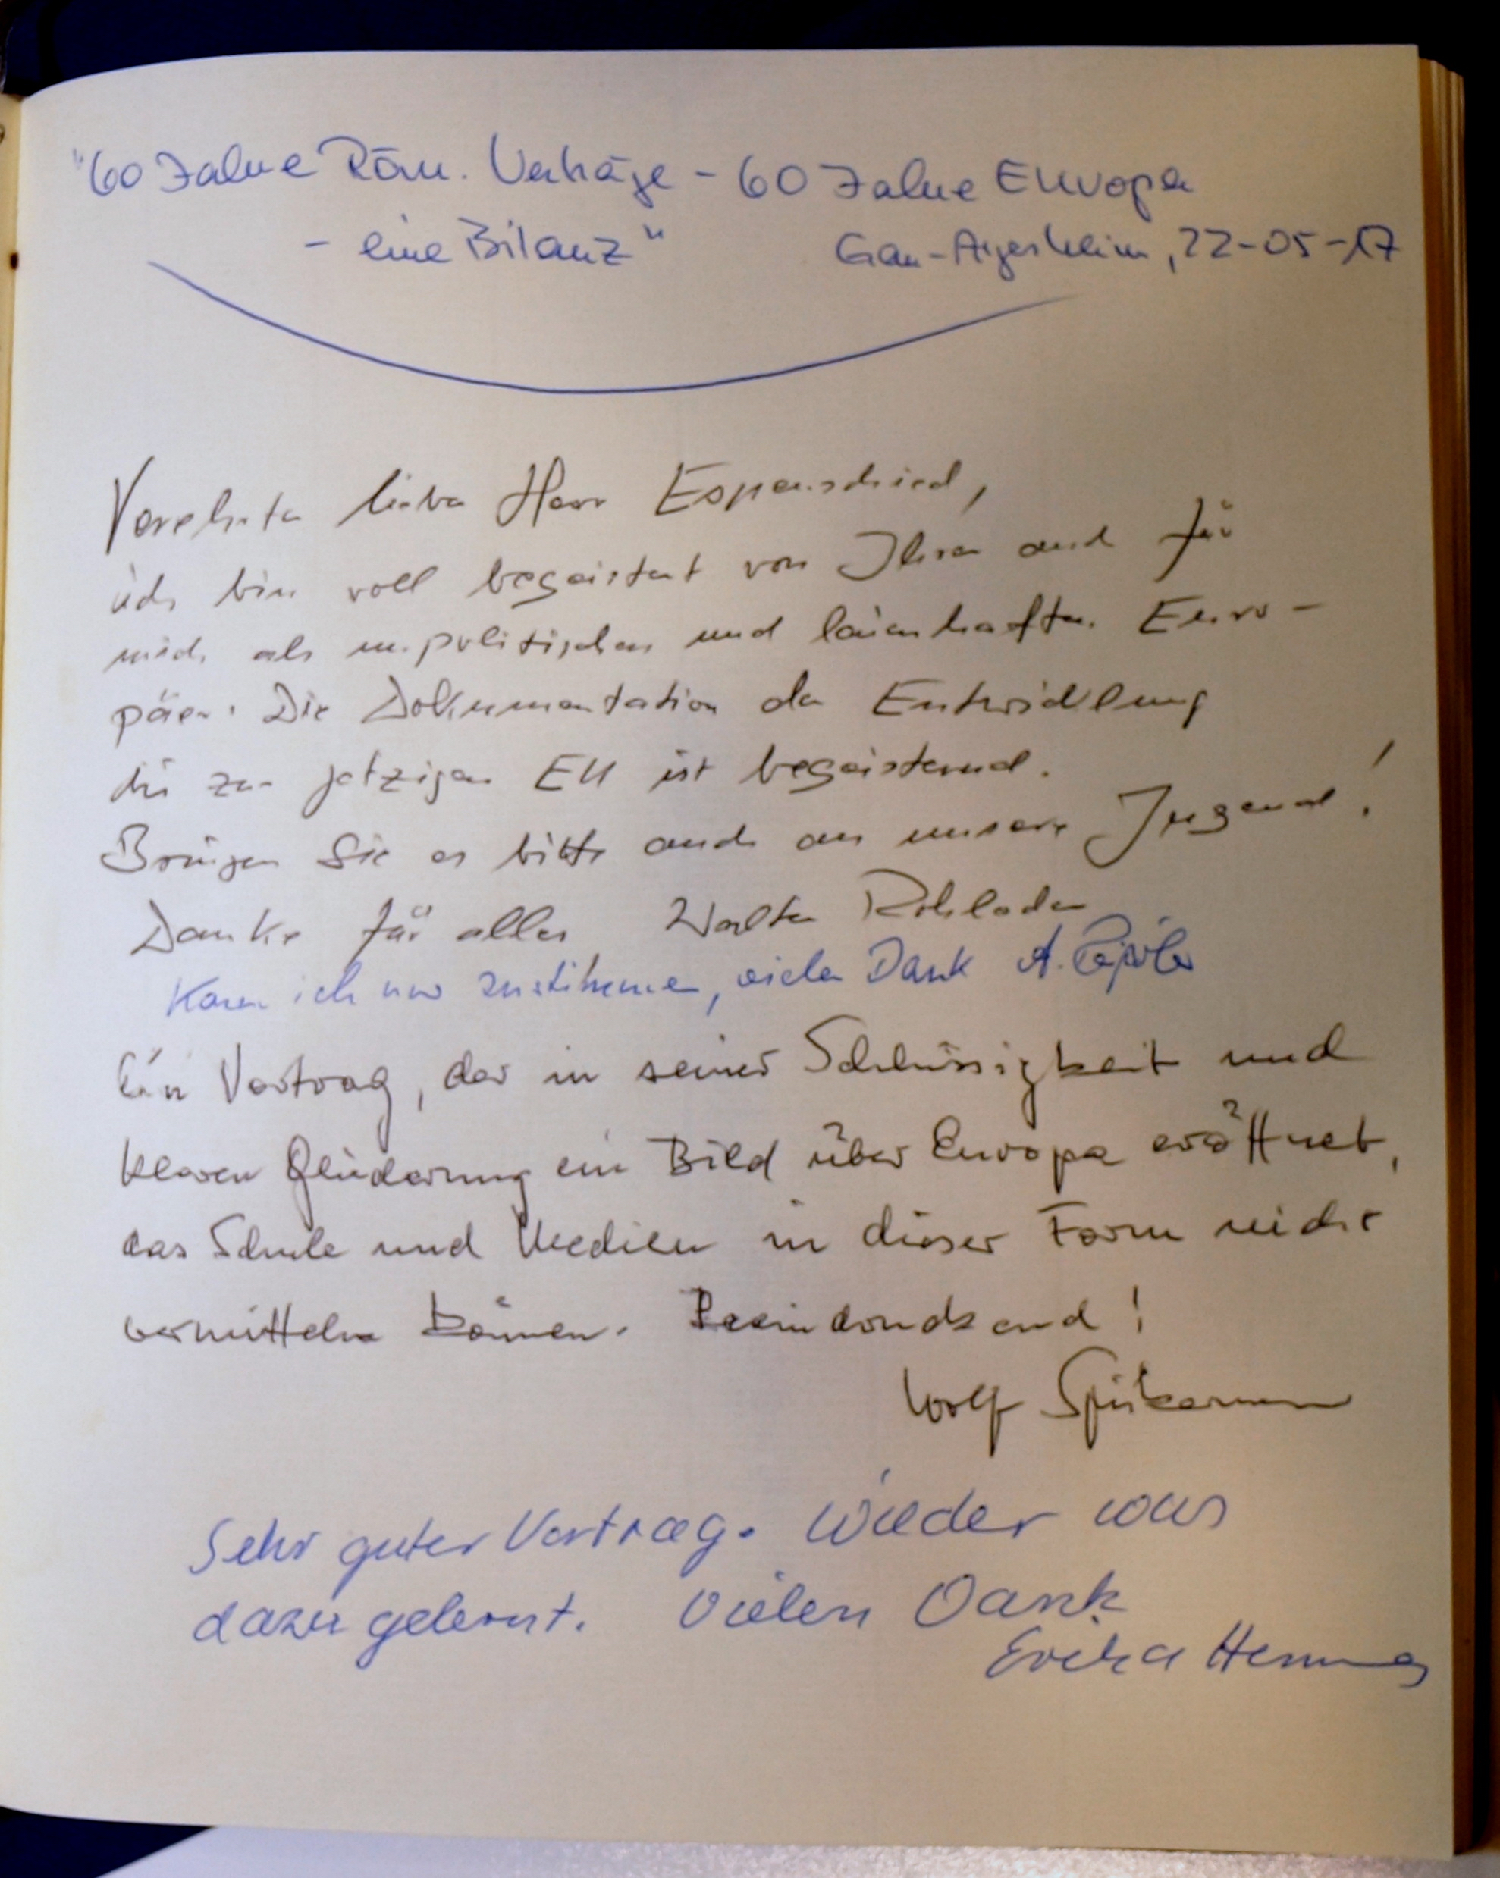 "60 Jahre Röm. Verträge - 60 Jahre Europa
- eine Bilanz" Gau-Algesheim, 22-05-17
Verehrter lieber Herr Espenschied,
ich bin voll begeistert von Ihren und für
mich als unpolitischen und laienhaften Euro-
päer. Die Dokumentation der Entwicklung
bis zur jetzigen EU ist begeisternd.
Bringen Sie es bitte auch an unsere Jugend!
Danke für alles Walter
Kann ich nur zustimmen, vielen Dank A.
Ein Vortrag, der in seiner Schlüssigkeit und
klaren Gliederung ein Bild über Europa eröffnet,
das Schule und Medien in dieser Form nicht
vermitteln können. Beeindruckend!
Wolf Spikermann
Sehr guter Vortrag. Wieder was
dazu gelernt. Vielen Dank
Erika